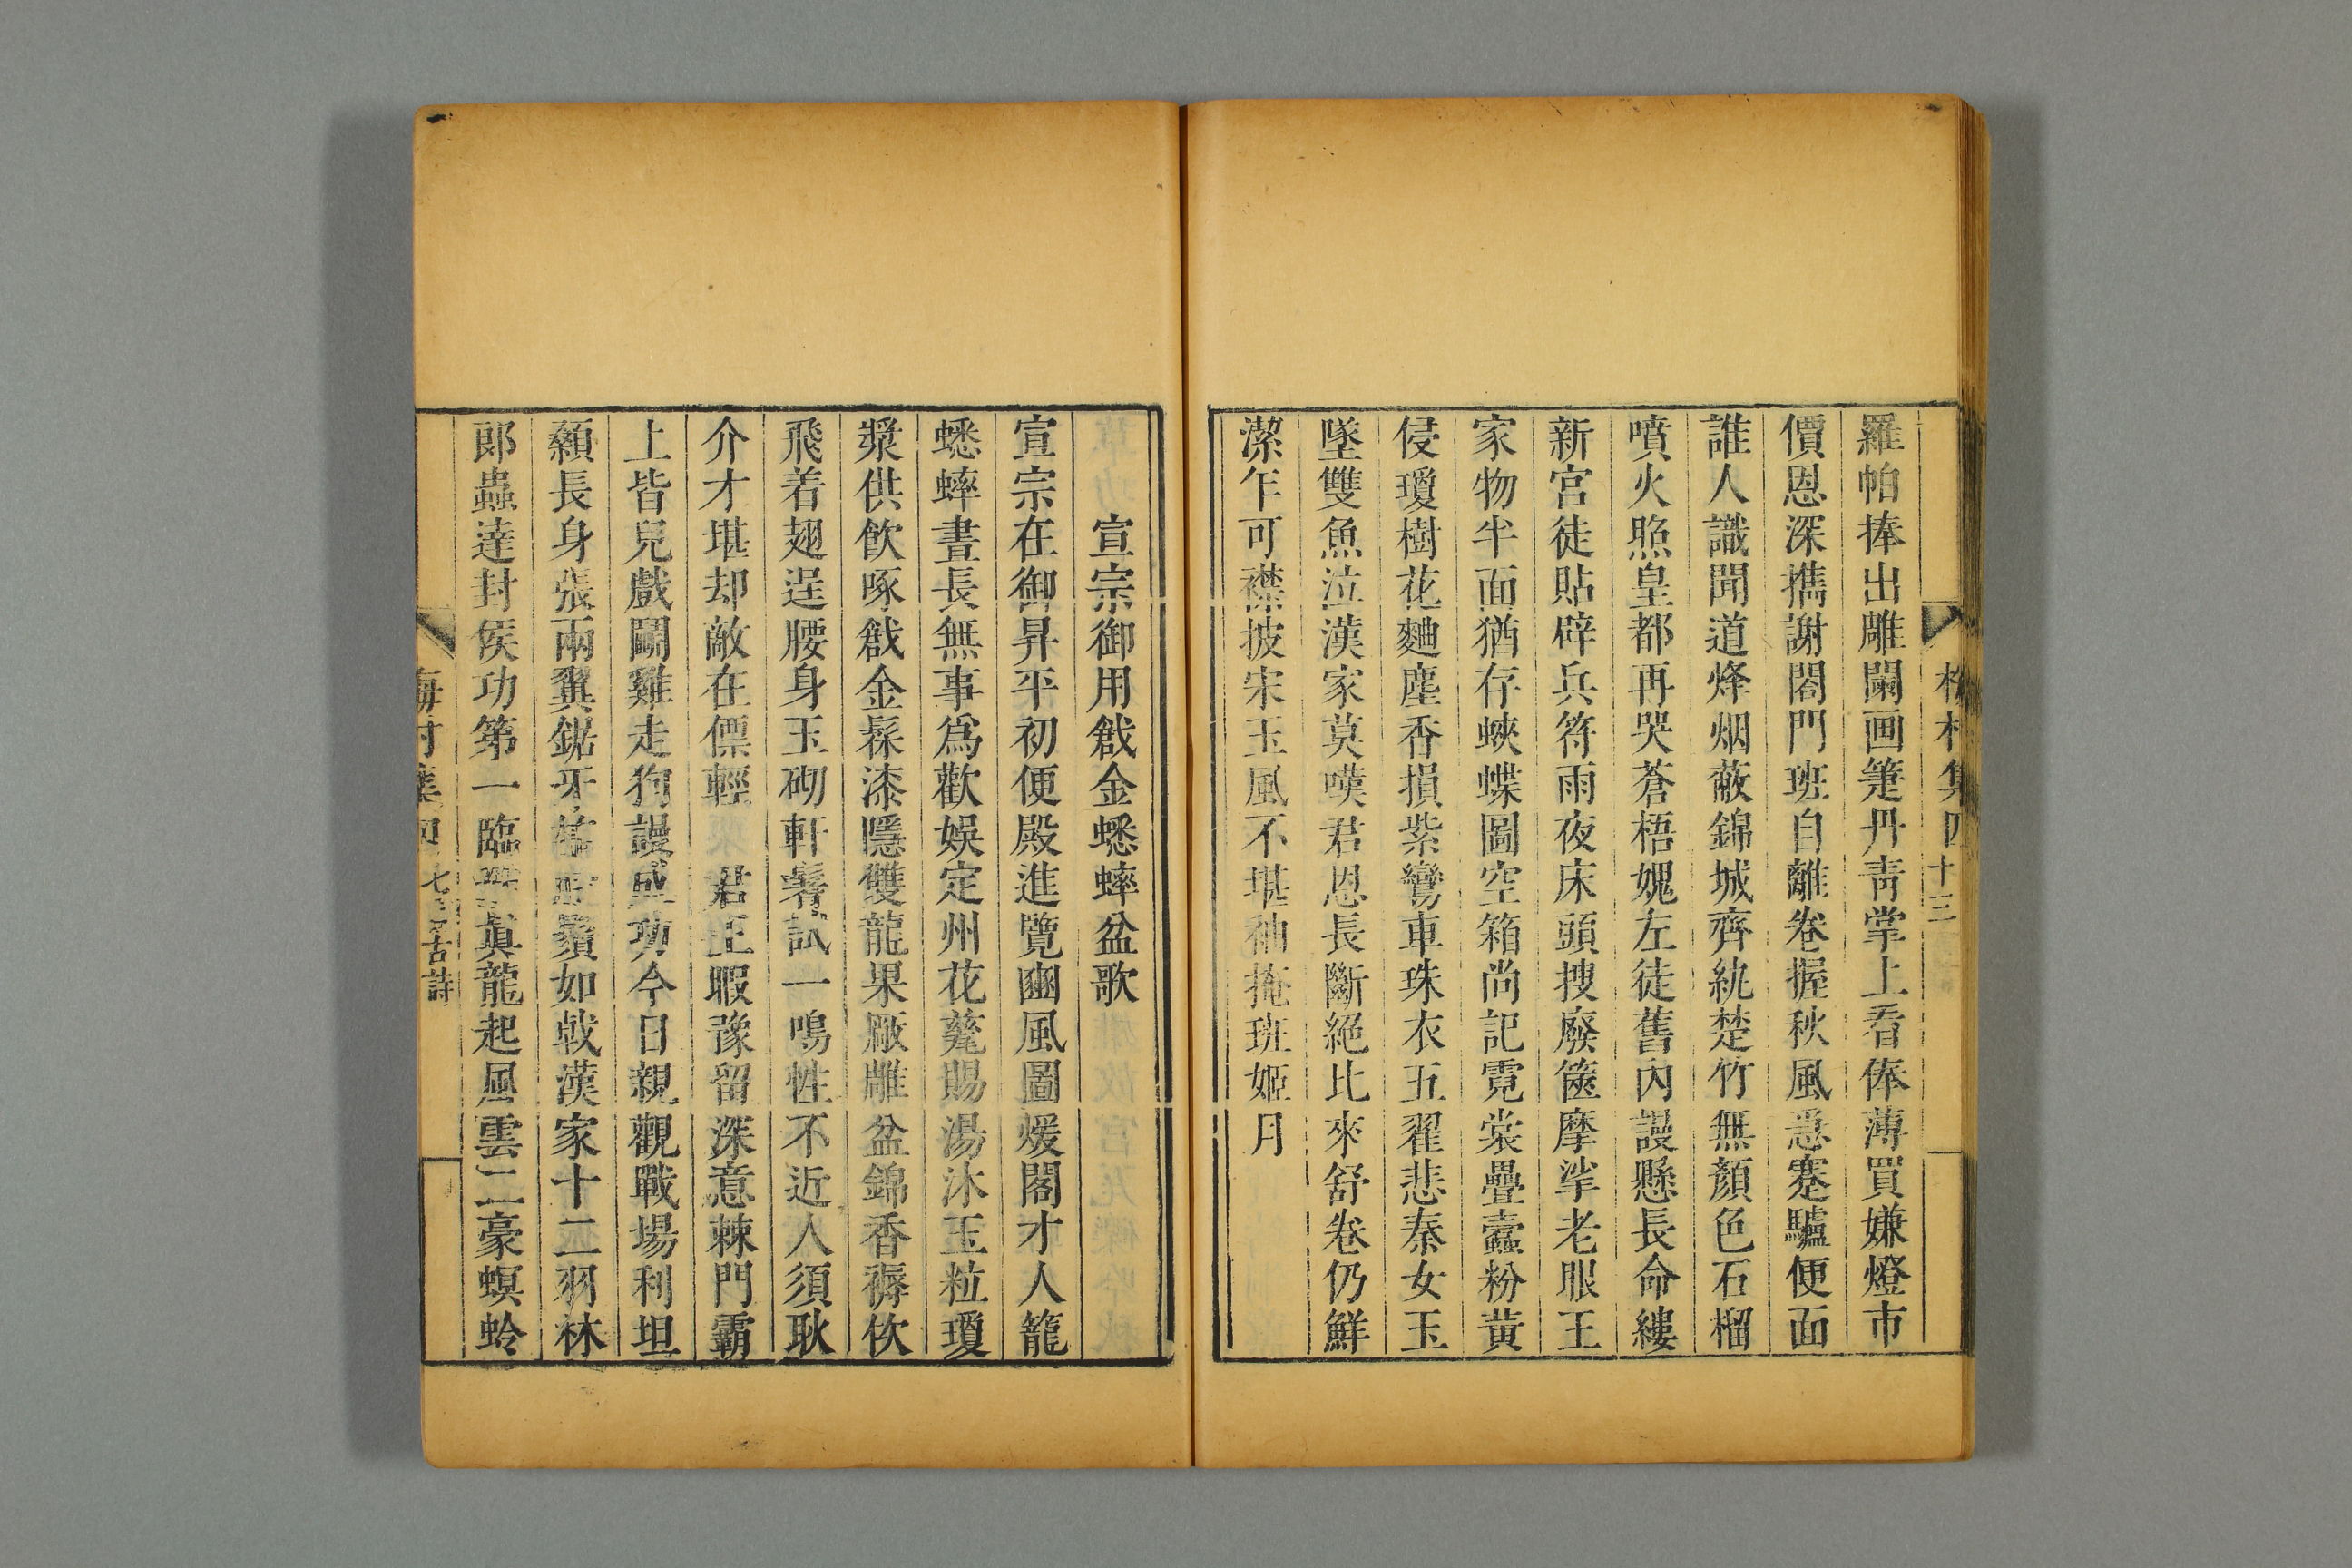 羅帕捧出雕闌画箑丹靑掌上看俸薄買嫌燈市
價恩深攜謝閤門班自離卷握秋風惡蹇驢便面
誰人識聞道烽烟蔽錦城齊紈楚竹無顏色石榴
噴火照皇都再哭蒼梧媿左徒舊內謾懸長命縷
新宮徒貼辟兵符雨夜床頭搜廢篋摩挲老眼王
家物半面猶存蛺蝶圖空箱尚記霓裳疊蠹粉黃
侵瓊樹花麯塵香損紫鸞車珠衣五翟悲秦女玉
墜雙魚泣漢家莫嘆君恩長斷絕比來舒卷仍鮮
潔乍可襟披宋玉風不堪袖掩班姬月
梅村集四
十三
宣宗御用戧金蟋蟀盆歌
宣宗在御昇平初便殿進覽豳風圖煖閣才人籠
蟋蟀晝長無事爲歡娛定州花甆賜湯沐玉粒瓊
漿供飲啄戧金髹漆隱雙龍果廠雕盆錦香褥佽
飛着翅逞腰身玉砌軒鬐試一鳴性不近人須耿
介才堪却敵在僄輕君王暇豫留深意棘門霸
上皆兒戲鬭雞走狗謾盛功今日親觀戰場利坦
顙長身張兩翼鋸牙鬚如戟漢家十二羽林
郎蟲達封侯功第一臨眞龍起風雲二豪螟蛉
梅村集四
七言古詩